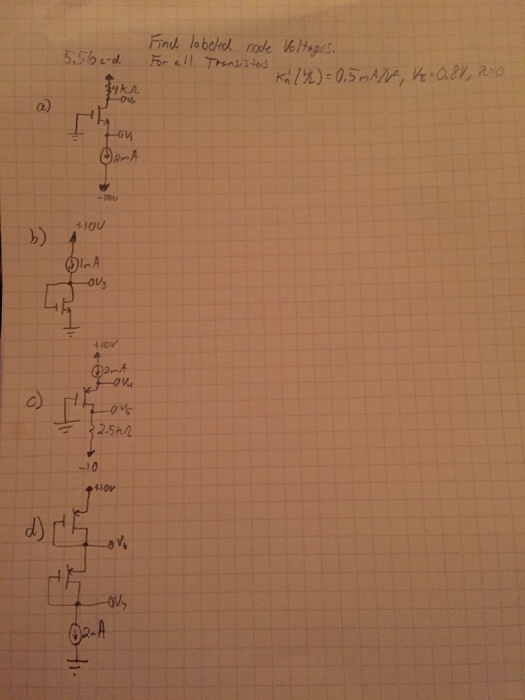 Find labeled node Voltages.
5.56 a-d For all Transistors
Kn'(W/L) = 0.5mA/V², Vt=0.8V, λ=0
a)
4kΩ
oV₂
oV₁
2mA
-10V
b)
+10V
1mA
oV₃
c)
+10V
2mA
oV₄
oV₅
2.5kΩ
-10
d)
+10V
oV₆
oV₇
2mA